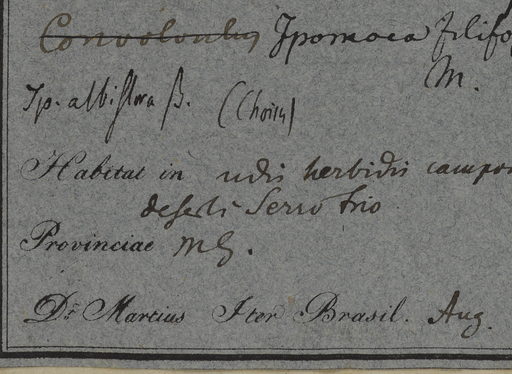 Convolvulus Ipomoea filifo
M.
Ip. albiflora β. (Choisy)
Habitat in udis herbidis campor
deserti Serro frio
Provinciae M G.
Dr. Martius Iter Brasil. Aug.